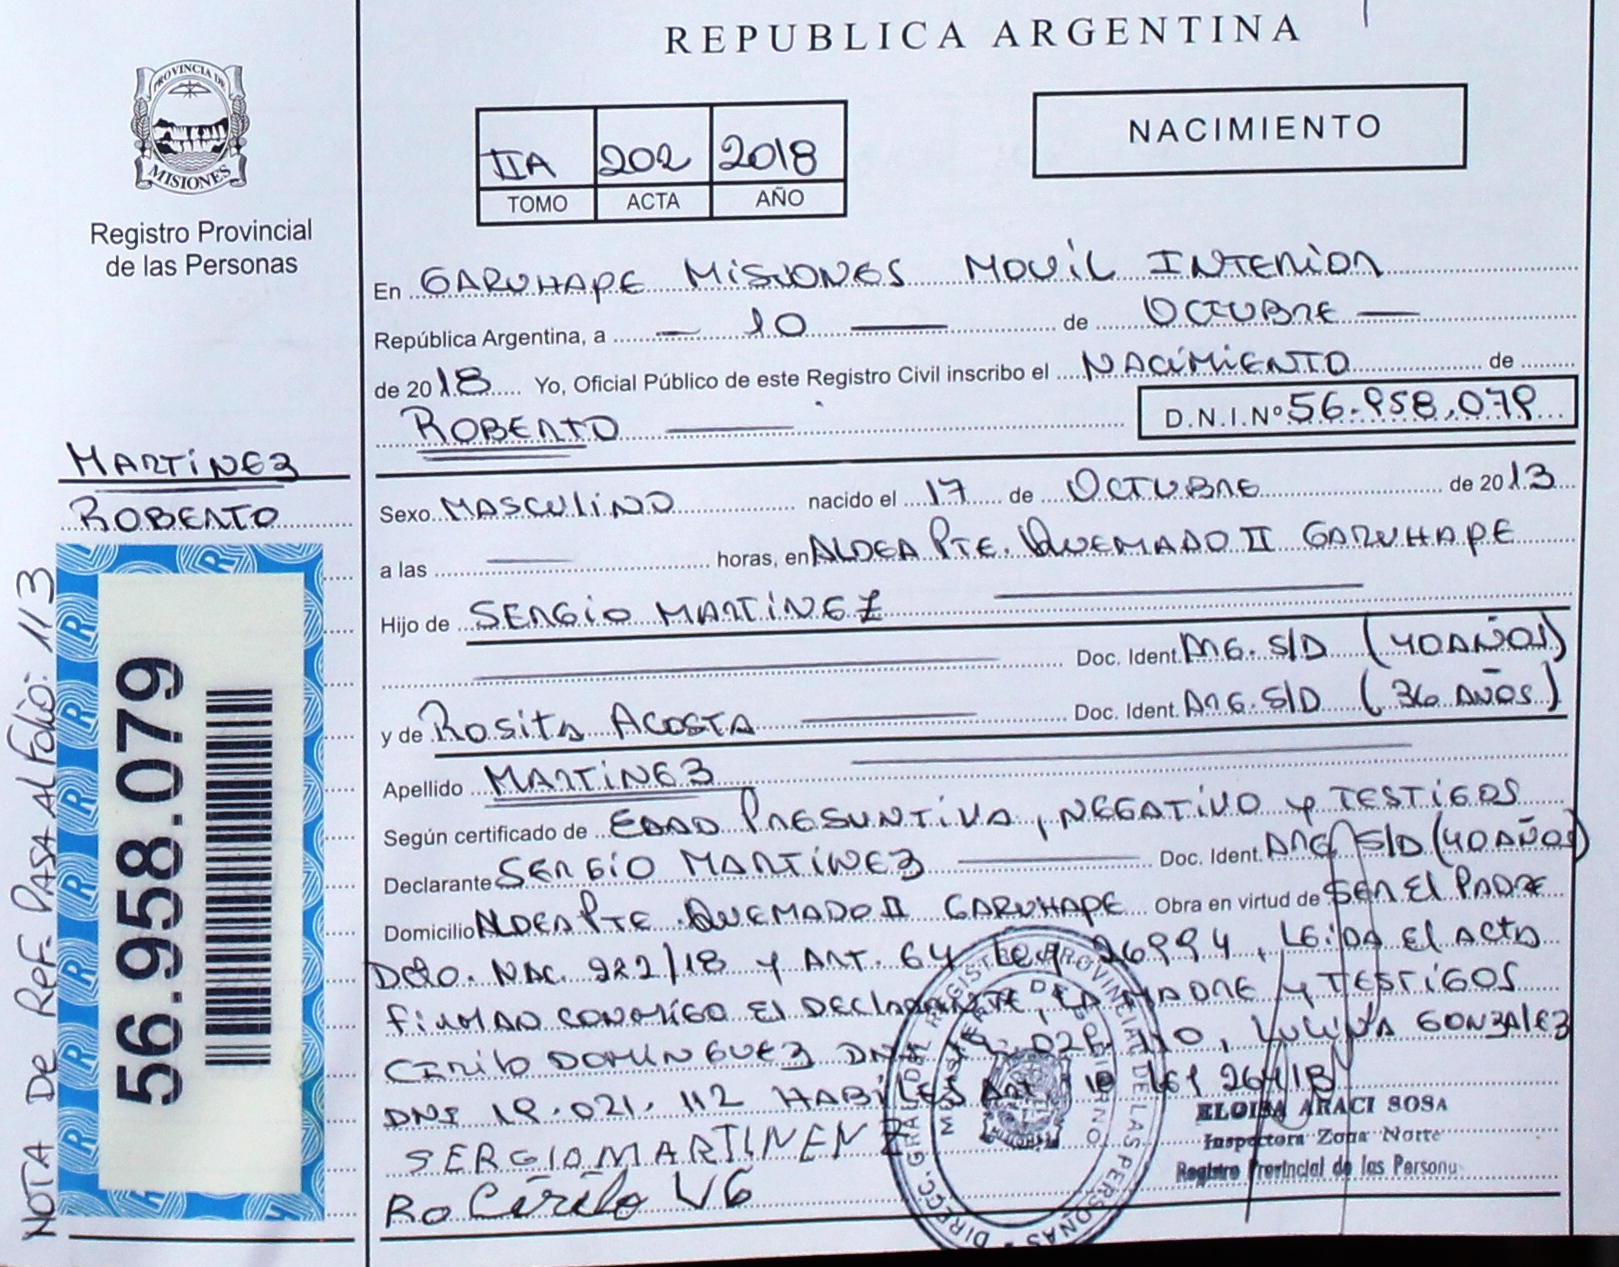 REPUBLICA ARGENTINA
PROVINCIA DE
MISIONES
Registro Provincial
de las Personas
IIA 202 2018
TOMO ACTA AÑO
NACIMIENTO
En GARUHAPE MISIONES MOVIL INTERIOR
República Argentina, a — 10 — de OCTUBRE —
de 2018 Yo, Oficial Público de este Registro Civil inscribo el NACIMIENTO de
ROBERTO — D.N.I.Nº 56.958.079
MARTINEZ
ROBERTO
Sexo MASCULINO nacido el 17 de OCTUBRE de 2013
a las — horas, en ALDEA PTE. QUEMADO II GARUHAPE
Hijo de SERGIO MARTINEZ
Doc. Ident. ARG. S/D (40 AÑOS)
y de Rosita ACOSTA — Doc. Ident. ARG. S/D (36 AÑOS)
Apellido MARTINEZ
Según certificado de EDAD PRESUNTIVA, NEGATIVO y TESTIGOS
Declarante SERGIO MARTINEZ — Doc. Ident. ARG S/D (40 AÑOS)
Domicilio ALDEA PTE. QUEMADO II GARUHAPE Obra en virtud de SER El PADRE
Dcto. NAC. 922/18 y ART. 64 Ley 26994, LEIDA El ACTA
FIRMAN CONMIGO El DECLARANTE, LA MADRE y TESTIGOS
CIRILO DOMINGUEZ DNI 19. 110, GONZALEZ
DNI 19.021.112 HABILES Art Ley
SERGIOMARTINENZ
Ro Cirilo VG
ELOISA ARACI SOSA
Inspectora Zona Norte
Registro Provincial de las Personas
DIRECC. GRAL. DEL REGISTRO PROVINCIAL DE LAS PERSONAS
DE GOBIERNO
NOTA DE REF. PASA AL FOLIO: 113
56.958.079